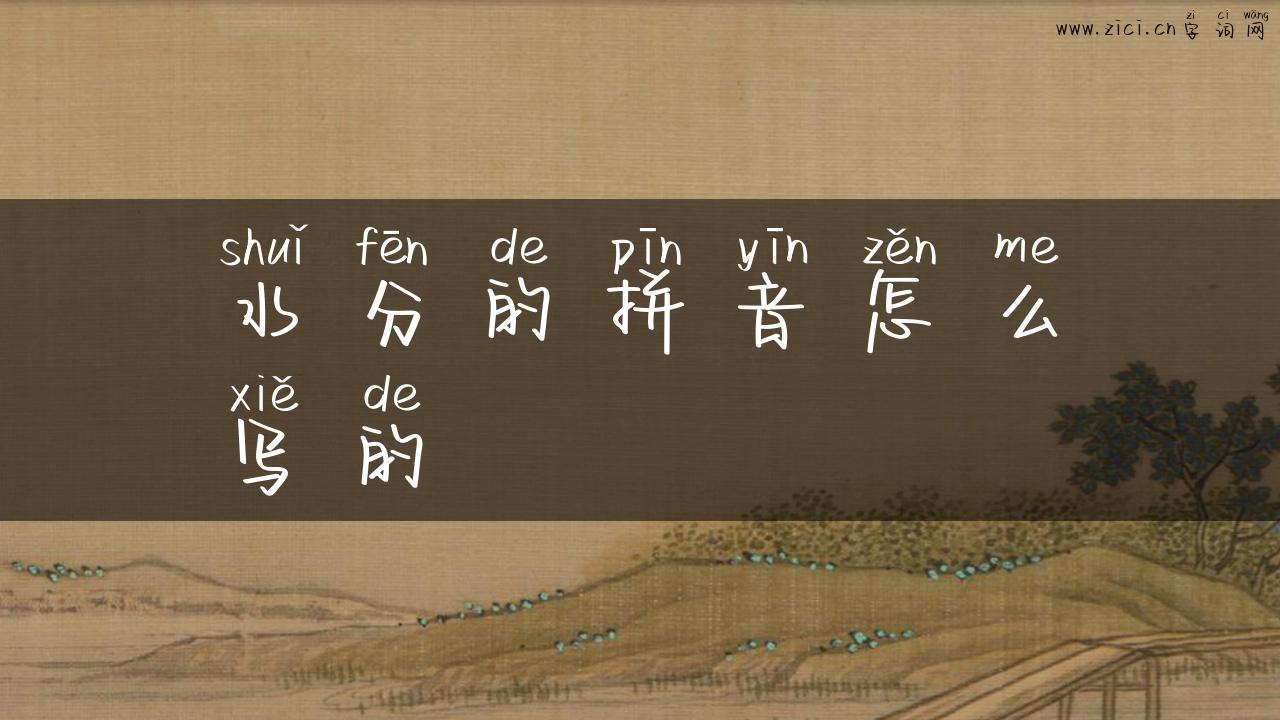 zì cí wǎng
www.zici.cn 字词网
shuǐ fēn de pīn yīn zěn me
水分的拼音怎么
xiě de
写的